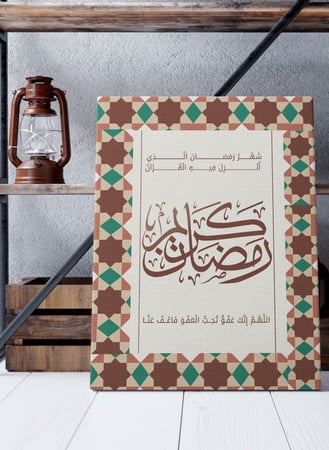 شَهْرُ رَمَضَانَ الَّذِي
أُنْزِلَ فِيهِ الْقُرْآنُ
رمضان كريم
اللَّهُمَّ إِنَّكَ عَفُوٌّ تُحِبُّ الْعَفْوَ فَاعْفُ عَنَّا